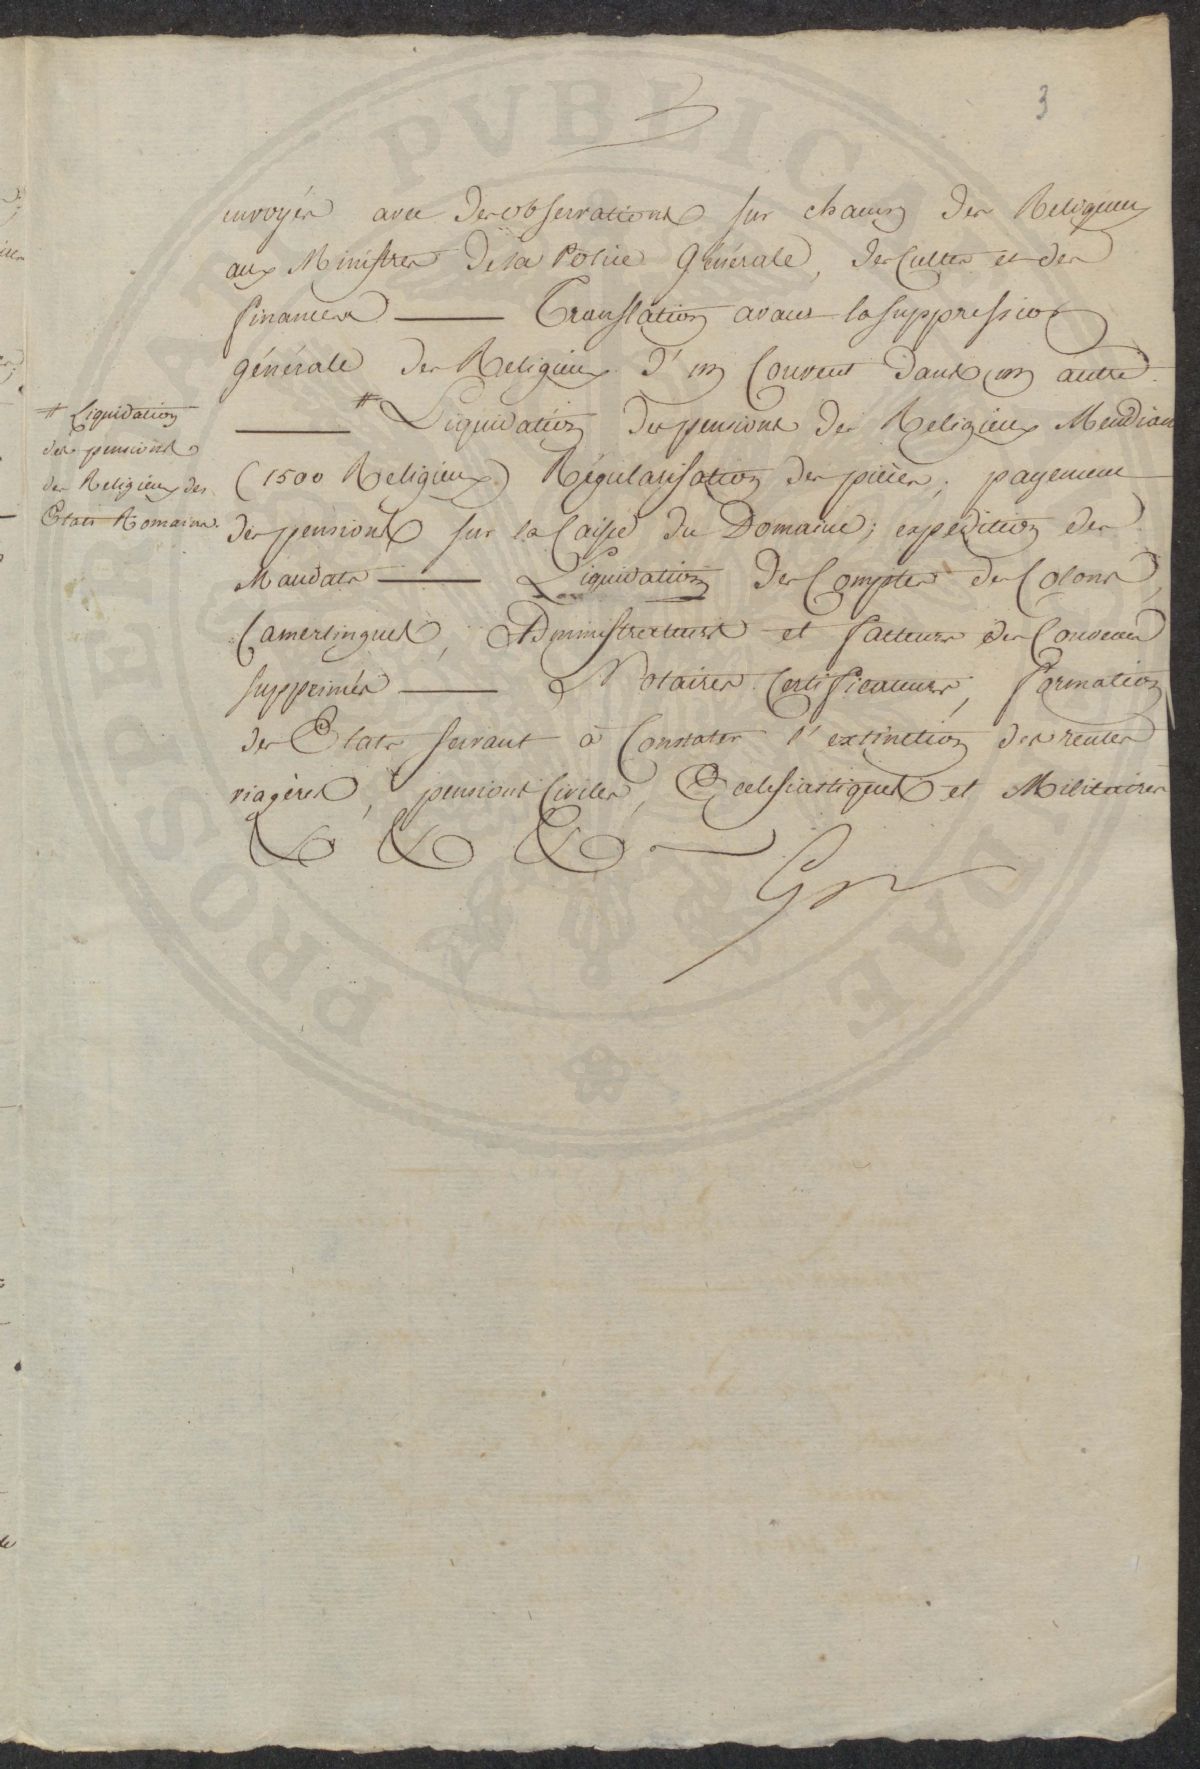 3
envoyés avec des observations sur chacun des Religieux
aux Ministres de la Police Générale, des Cultes et des
finances ——— Translation avant la suppression
générale des Religieux d'un Couvent dans un autre.
——— # Liquidation des pensions des Religieux Mendians
(1500 Religieux) Régularisation des pièces; payement
des pensions sur la Caisse du Domaine; expédition des
Mandats ——— Liquidation des Comptes des Colons,
Camerlingues, Administrateurs et facteurs des Couvens
supprimés ——— Notaires Certificateurs, formation
des Etats servant à Constater l'extinction des rentes
viagères, pensions Civiles, Ecclésiastiques et Militaires
&c &c &c
# Liquidation
des pensions
des Religieux des
Etats Romains.
PROSPERITATI PVBLICAE